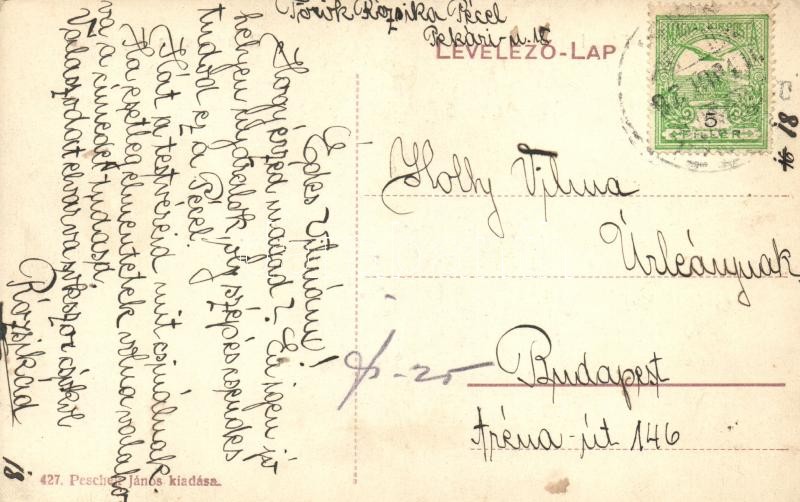 Török Rózsika Pécel
Pekári-u. 12
LEVELEZŐ-LAP
MAGYAR KIR. POSTA
5
FILLÉR
18
Holly Vilma
Úrleánynak
Budapest
Aréna-út 146
Édes Vilmám!
Hogy érzed magad? Én igen jó
helyen nyaralok, oly szép és csendes
tudod ez a Pécel.
Hát a testvéreid mit csinálnak.
Ha esetleg elmentetek volna valaho
va a címedet tudasd.
Válaszodat elvárva sokszor csókol
Rózsikád
18
427. Peschek János kiadása.